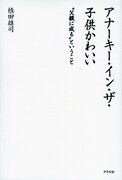 アナーキー・イン・ザ・
子供かわいい
“父親に成る”ということ
植田雄司
アクセル